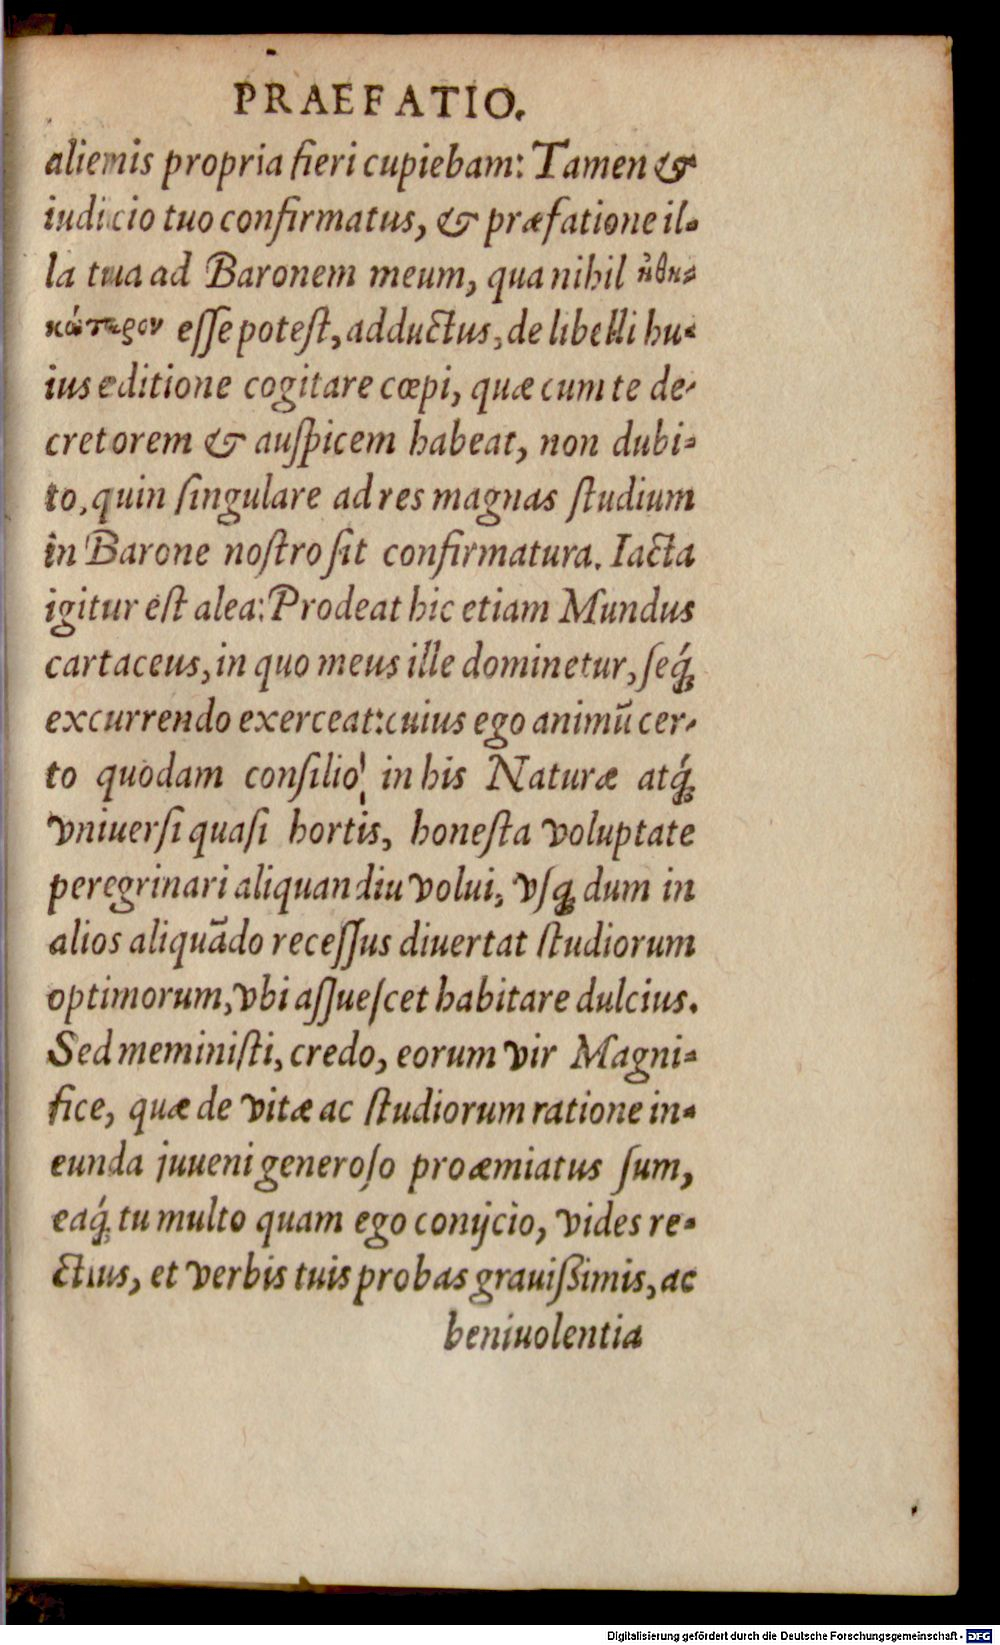 PRAEFATIO.
alienis propria fieri cupiebam: Tamen &
iudicio tuo confirmatus, & præfatione il-
la tua ad Baronem meum, qua nihil ἠθι-
κώτερον eſſe poteſt, adductus, de libelli hu-
ius editione cogitare cœpi, quæ cum te de-
cretorem & auſpicem habeat, non dubi-
to, quin ſingulare ad res magnas ſtudium
in Barone noſtro ſit confirmatura. Iacta
igitur eſt alea: Prodeat hic etiam Mundus
cartaceus, in quo meus ille dominetur, ſeq́;
excurrendo exerceat: cuius ego animū cer-
to quodam conſilio, in his Naturæ atq́;
vniuerſi quaſi hortis, honeſta voluptate
peregrinari aliquandiu volui, vſq; dum in
alios aliquādo receſſus diuertat ſtudiorum
optimorum, vbi aſſueſcet habitare dulcius.
Sed meminiſti, credo, eorum vir Magni-
fice, quæ de vitæ ac ſtudiorum ratione in-
eunda juueni generoſo proœmiatus ſum,
eaq́; tu multo quam ego conijcio, vides re-
ctius, et verbis tuis probas grauißimis, ac
beniuolentia
Digitalisierung gefördert durch die Deutsche Forschungsgemeinschaft - DFG